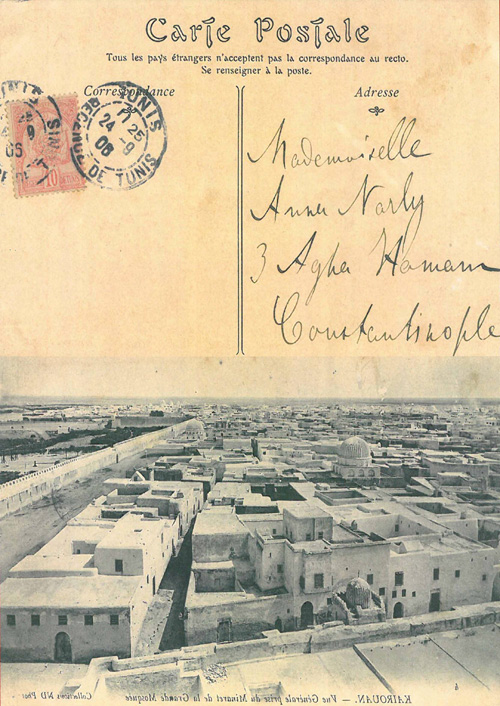 Carte Postale
Tous les pays étrangers n'acceptent pas la correspondance au recto.
Se renseigner à la poste.
Correspondance
Adresse
TUNIS
11 25
24 -9
06
DE TUNIS
10
Mademoiselle
Anna Narly
3 Agha Hamam
Constantinople
KAIROUAN. – Vue Générale prise du Minaret de la Grande Mosquée
Collections ND Phot